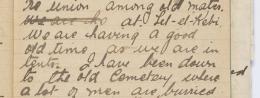 re union among old mates.
We are at Tel-el-Kebi
We are having a good
old time, as we are in
tents. I have been down
to the old Cemetry, where
a lot of men are burried